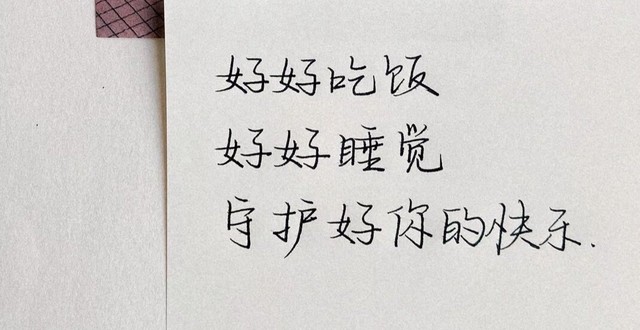 好好吃饭
好好睡觉
守护好你的快乐.